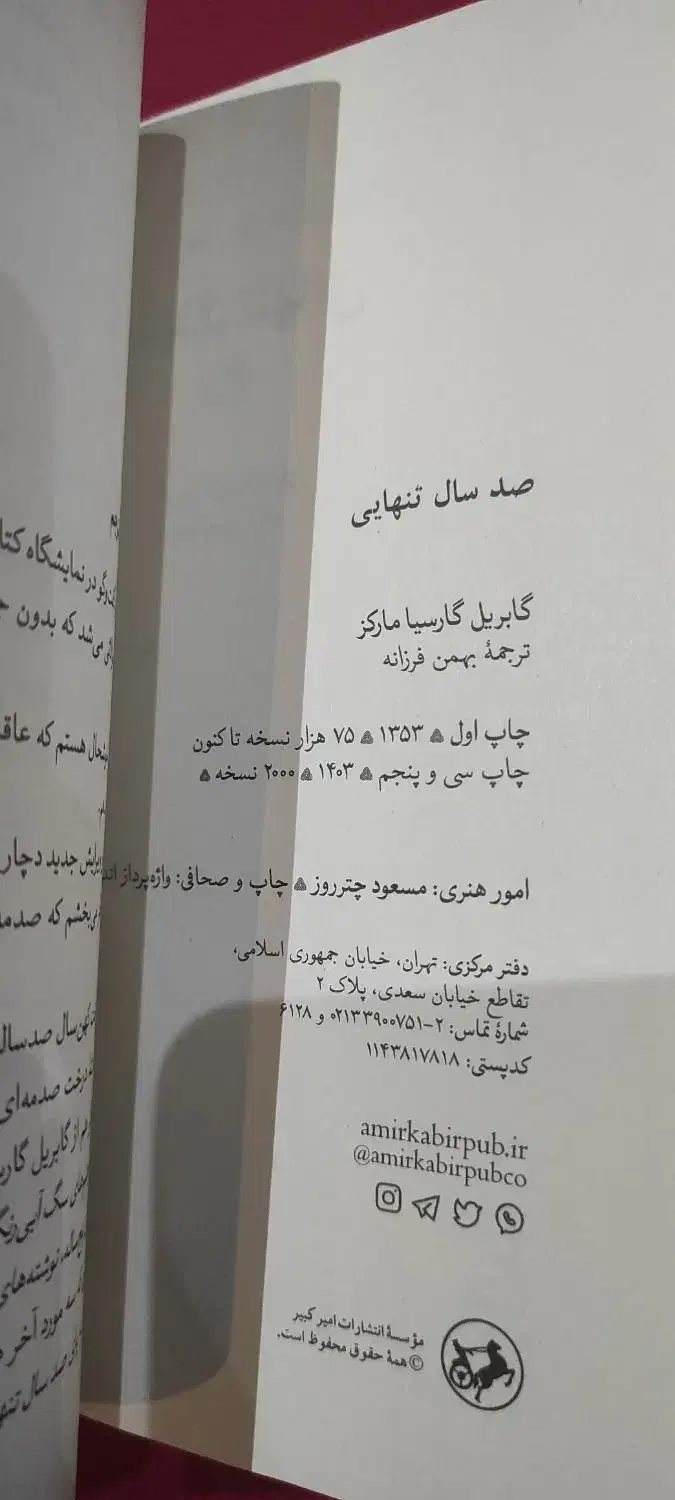 صد سال تنهایی
گابریل گارسیا مارکز
ترجمهٔ بهمن فرزانه
چاپ اول ۱۳۵۳ ۷۵ هزار نسخه تا کنون
چاپ سی و پنجم ۱۴۰۳ ۲۰۰۰ نسخه
امور هنری: مسعود چترروز چاپ و صحافی: واژه‌پرداز
دفتر مرکزی: تهران، خیابان جمهوری اسلامی،
تقاطع خیابان سعدی، پلاک ۲
شمارهٔ تماس: ۲-۰۲۱۳۳۹۰۰۷۵۱ و ۶۱۲۸
کدپستی: ۱۱۴۳۸۱۷۸۱۸
amirkabirpub.ir
@amirkabirpubco
مؤسسهٔ انتشارات امیرکبیر
© همهٔ حقوق محفوظ است.
در نمایشگاه
می‌شد که بدون
هستم که
جدید دچار
که
سال
درخت صدمه‌ای
از گابریل
سگ آبی
نوشته‌های
مورد آخر
صد سال